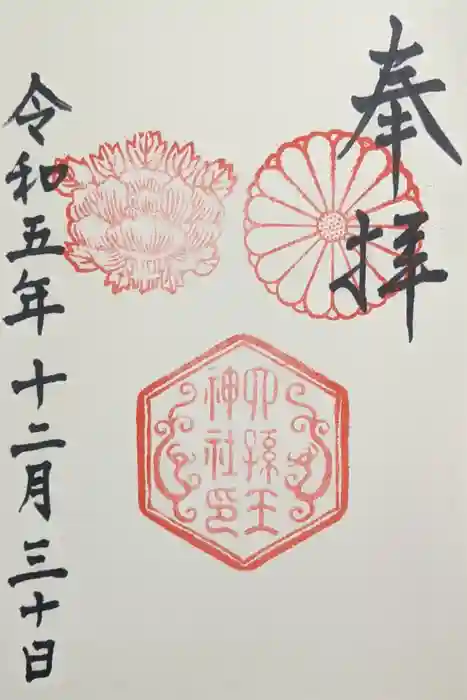 奉拝
六孫王
神社印
令和五年十二月三十日